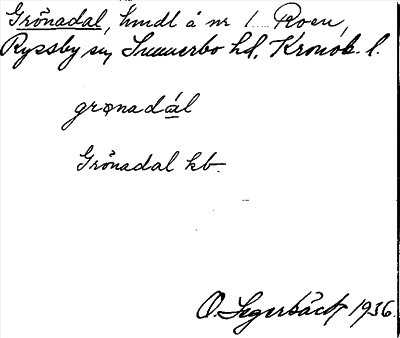 Grönadal, hmdl å nr 1 Roen,
Ryssby sn, Sunnerbo hd, Kronob. l.
grønadál
Grönadal kb.
O. Segerbäck 1936.